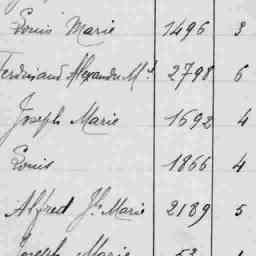 Louis Marie 1496 3
Ferdinand Alexandre M.ie 2798 6
Joseph Marie 1692 4
Louis 1866 4
Alfred Jh Marie 2189 5
Joseph Marie 53